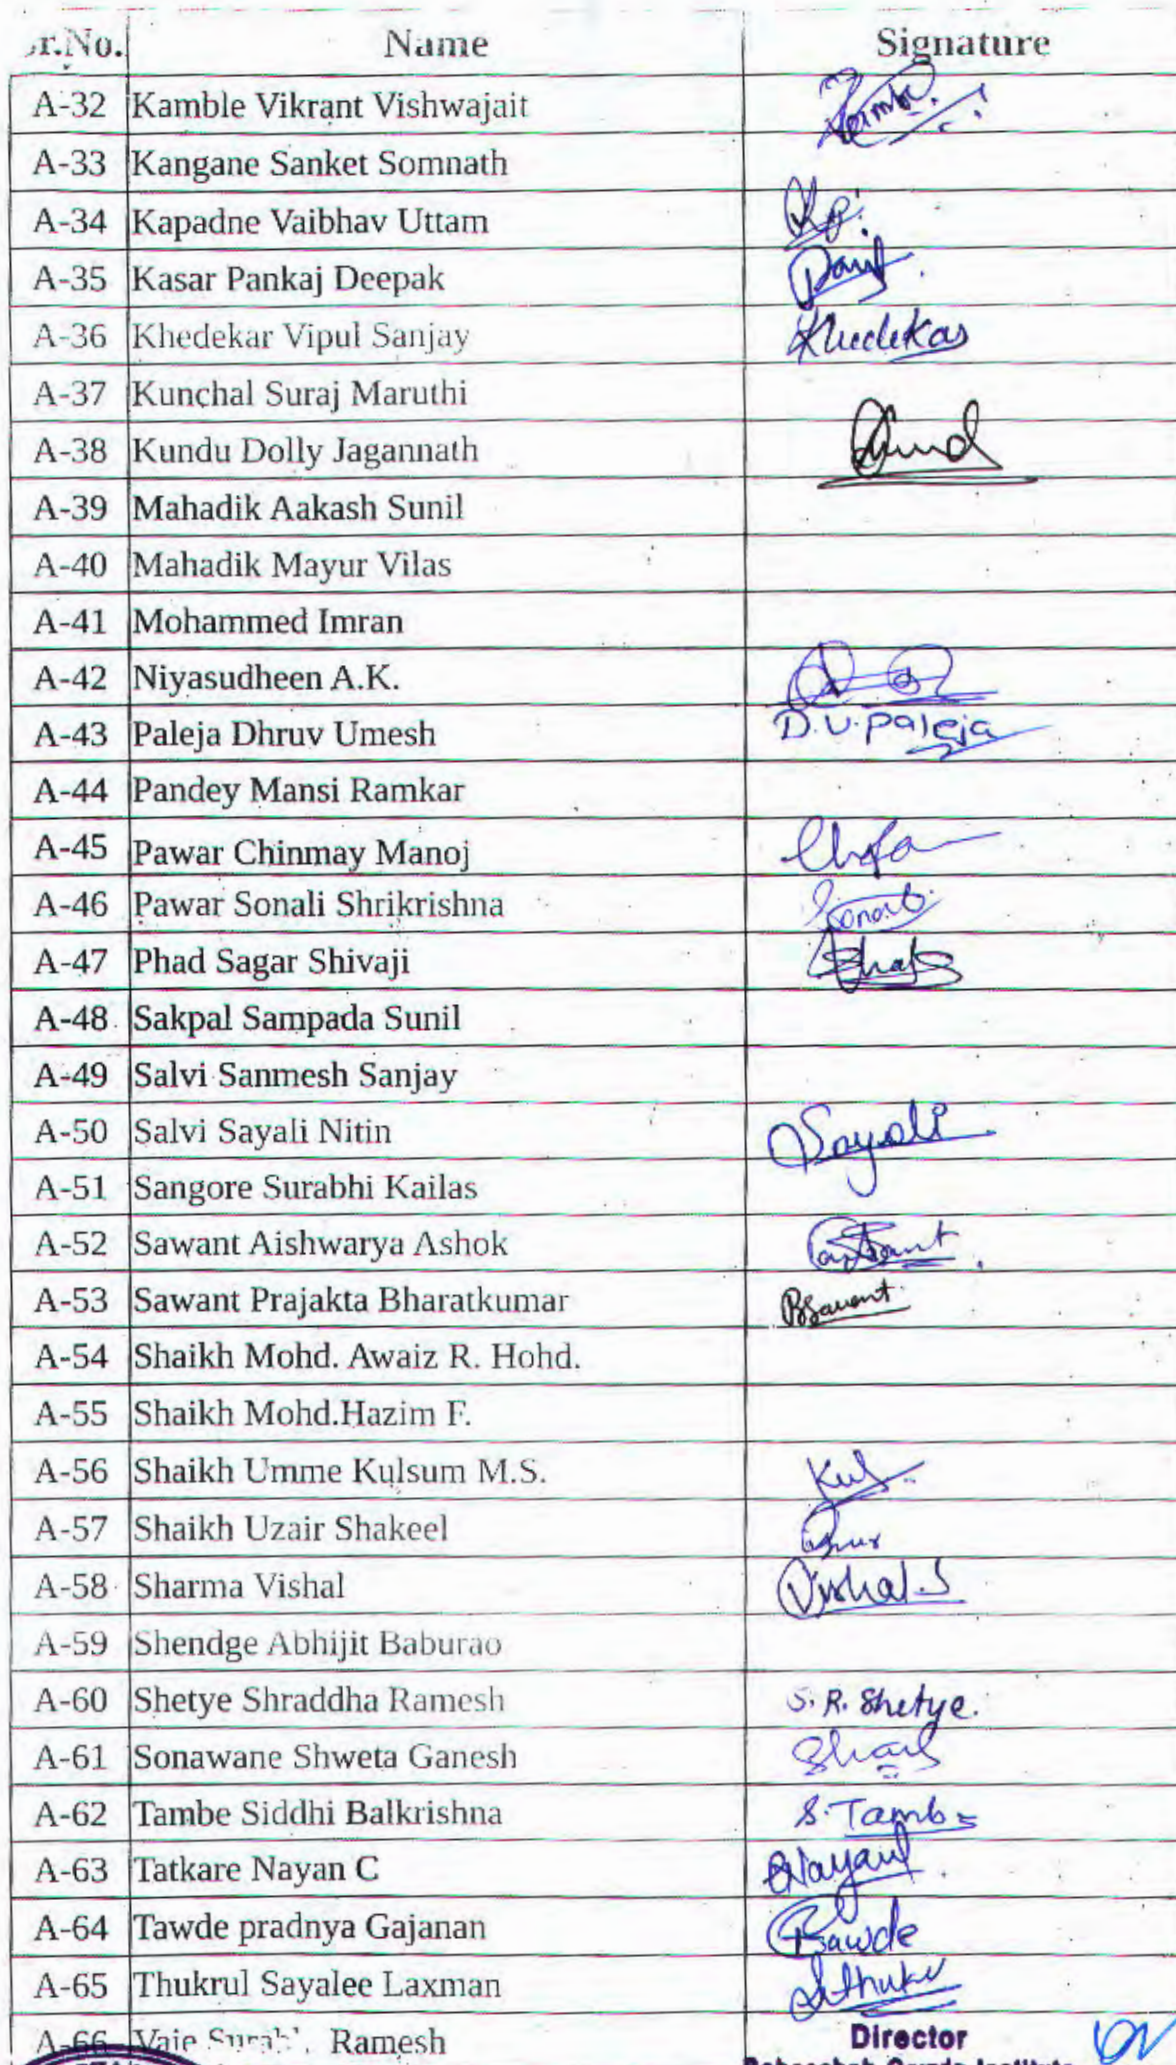 Sr.No. Name Signature
A-32 Kamble Vikrant Vishwajait Kamble
A-33 Kangane Sanket Somnath
A-34 Kapadne Vaibhav Uttam
A-35 Kasar Pankaj Deepak
A-36 Khedekar Vipul Sanjay Khedekar
A-37 Kunchal Suraj Maruthi
A-38 Kundu Dolly Jagannath
A-39 Mahadik Aakash Sunil
A-40 Mahadik Mayur Vilas
A-41 Mohammed Imran
A-42 Niyasudheen A.K.
A-43 Paleja Dhruv Umesh D.U.Paleja
A-44 Pandey Mansi Ramkar
A-45 Pawar Chinmay Manoj
A-46 Pawar Sonali Shrikrishna
A-47 Phad Sagar Shivaji
A-48 Sakpal Sampada Sunil
A-49 Salvi Sanmesh Sanjay
A-50 Salvi Sayali Nitin Sayali
A-51 Sangore Surabhi Kailas
A-52 Sawant Aishwarya Ashok
A-53 Sawant Prajakta Bharatkumar PBSawant
A-54 Shaikh Mohd. Awaiz R. Hohd.
A-55 Shaikh Mohd.Hazim F.
A-56 Shaikh Umme Kulsum M.S. Kul
A-57 Shaikh Uzair Shakeel
A-58 Sharma Vishal Vishal.S
A-59 Shendge Abhijit Baburao
A-60 Shetye Shraddha Ramesh S. R. Shetye.
A-61 Sonawane Shweta Ganesh
A-62 Tambe Siddhi Balkrishna S.Tambe
A-63 Tatkare Nayan C Nayan
A-64 Tawde pradnya Gajanan PTawde
A-65 Thukrul Sayalee Laxman
A-66 Vaje Ramesh
Director